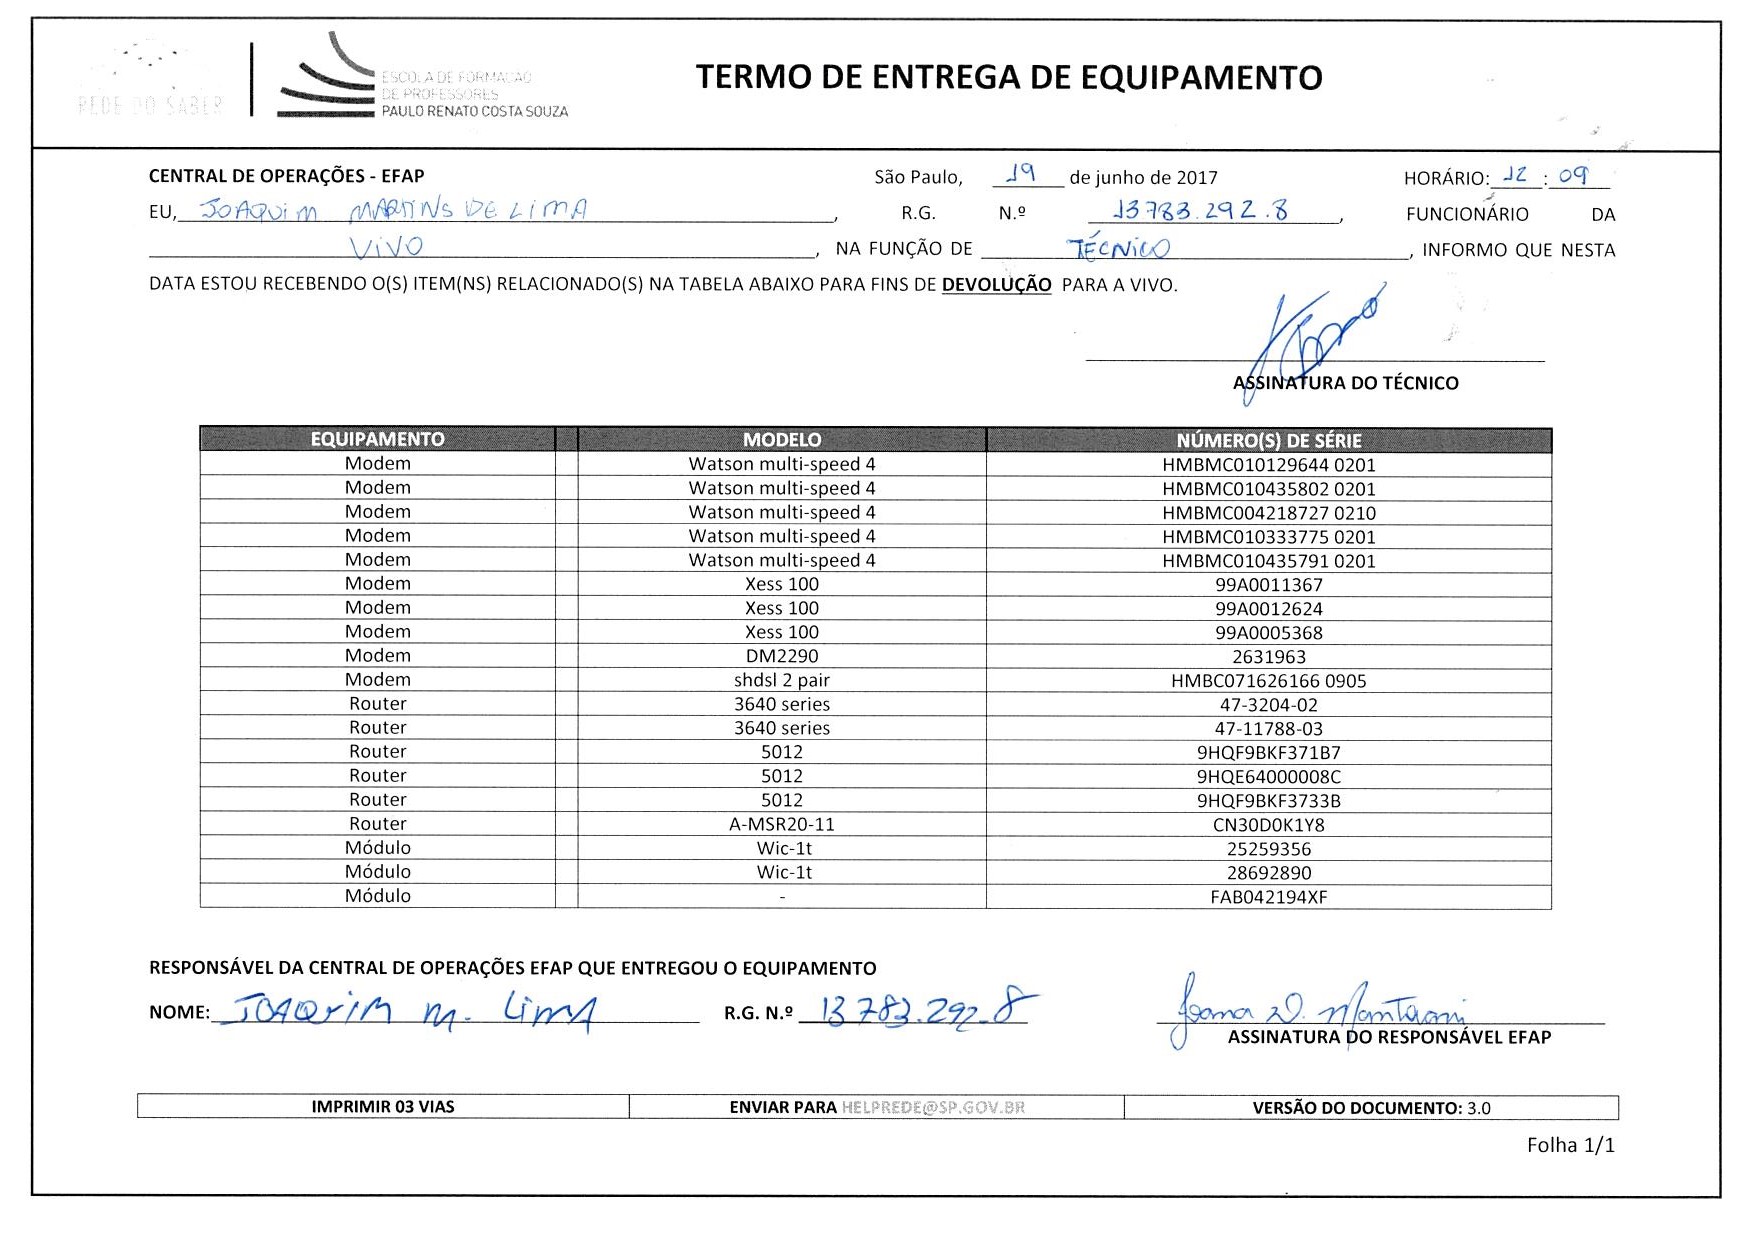 REDE DO SABER
ESCOLA DE FORMAÇÃO
DE PROFESSORES
PAULO RENATO COSTA SOUZA
TERMO DE ENTREGA DE EQUIPAMENTO
CENTRAL DE OPERAÇÕES - EFAP São Paulo, 19 de junho de 2017 HORÁRIO: 12 : 09
EU, JOAQUIM MARTINS DE LIMA, R.G. N.º 13783.292.8, FUNCIONÁRIO DA
VIVO, NA FUNÇÃO DE TÉCNICO, INFORMO QUE NESTA
DATA ESTOU RECEBENDO O(S) ITEM(NS) RELACIONADO(S) NA TABELA ABAIXO PARA FINS DE DEVOLUÇÃO PARA A VIVO.
ASSINATURA DO TÉCNICO
EQUIPAMENTO MODELO NÚMERO(S) DE SÉRIE
Modem Watson multi-speed 4 HMBMC010129644 0201
Modem Watson multi-speed 4 HMBMC010435802 0201
Modem Watson multi-speed 4 HMBMC004218727 0210
Modem Watson multi-speed 4 HMBMC010333775 0201
Modem Watson multi-speed 4 HMBMC010435791 0201
Modem Xess 100 99A0011367
Modem Xess 100 99A0012624
Modem Xess 100 99A0005368
Modem DM2290 2631963
Modem shdsl 2 pair HMBC071626166 0905
Router 3640 series 47-3204-02
Router 3640 series 47-11788-03
Router 5012 9HQF9BKF371B7
Router 5012 9HQE64000008C
Router 5012 9HQF9BKF3733B
Router A-MSR20-11 CN30D0K1Y8
Módulo Wic-1t 25259356
Módulo Wic-1t 28692890
Módulo - FAB042194XF
RESPONSÁVEL DA CENTRAL DE OPERAÇÕES EFAP QUE ENTREGOU O EQUIPAMENTO
NOME: JOAQUIM M. LIMA R.G. N.º 13783.292.8
ASSINATURA DO RESPONSÁVEL EFAP
IMPRIMIR 03 VIAS ENVIAR PARA HELPREDE@SP.GOV.BR VERSÃO DO DOCUMENTO: 3.0
Folha 1/1